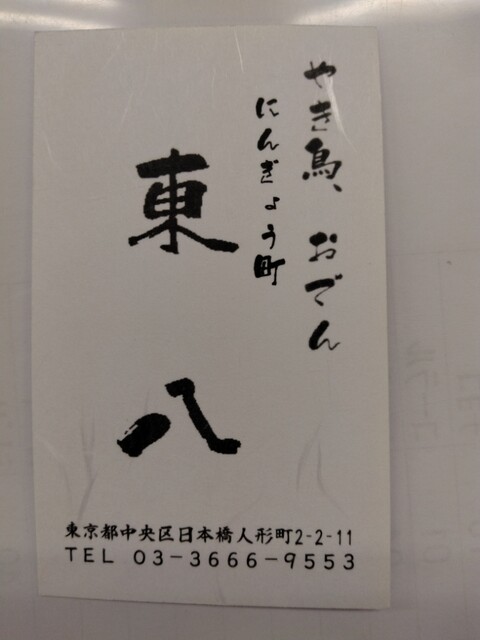 やき鳥、おでん
にんぎょう町
東八
東京都中央区日本橋人形町2-2-11
TEL 03-3666-9553